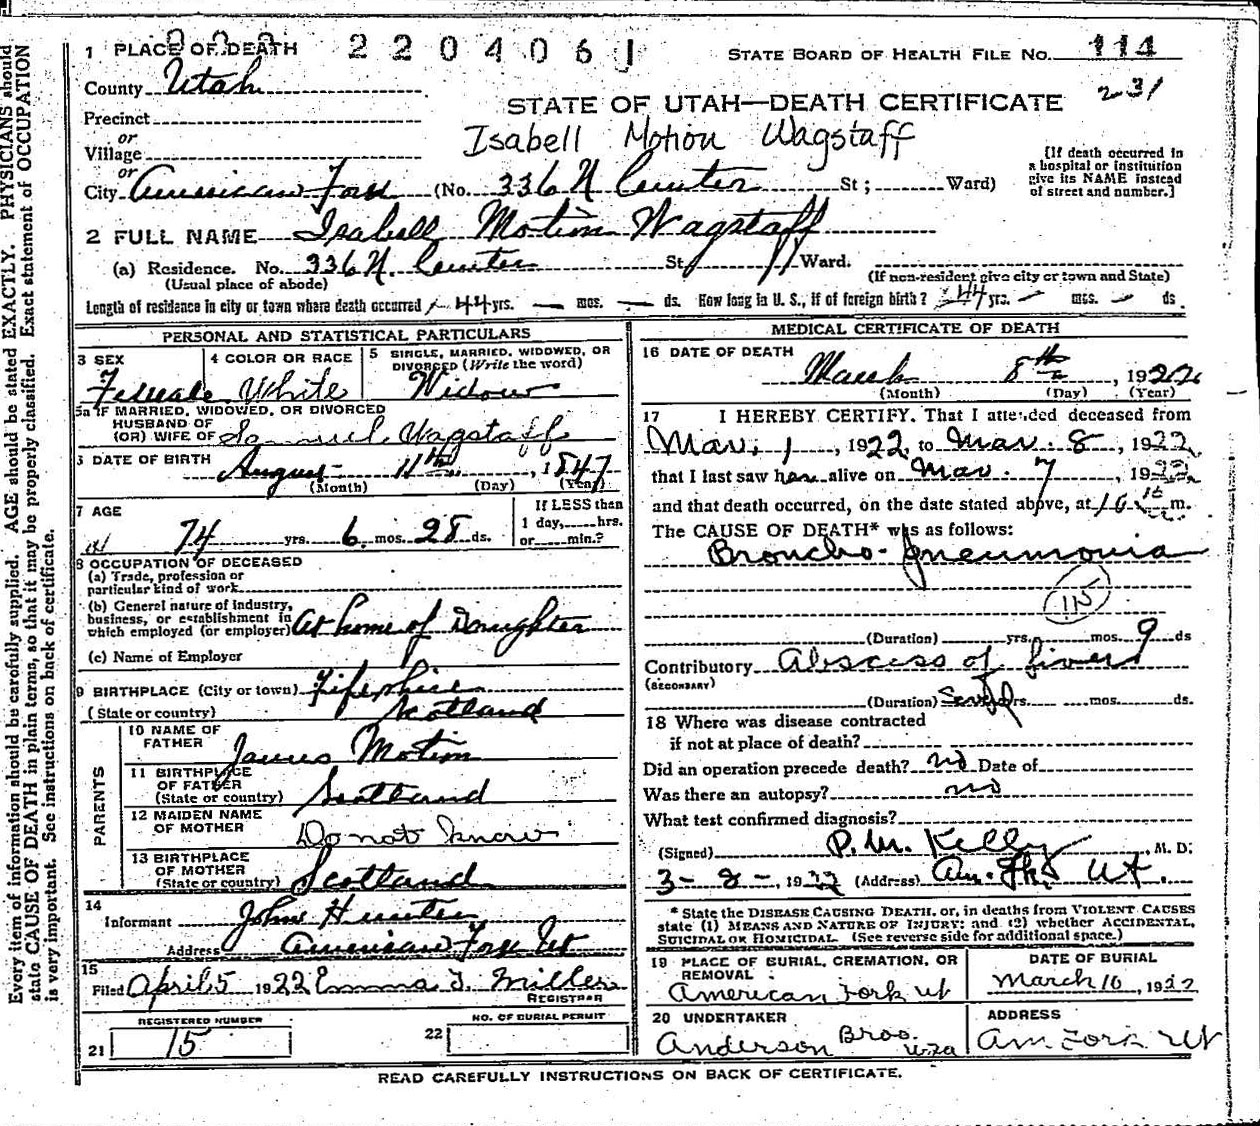 1 PLACE OF DEATH 2204061 STATE BOARD OF HEALTH FILE NO. 114
County Utah 231
STATE OF UTAH—DEATH CERTIFICATE
Precinct
or
Village
Isabell Motion Wagstaff
or
City American Fork (No. 336 N Center St; Ward)
[If death occurred in
a hospital or institution
give its NAME instead
of street and number.]
2 FULL NAME Isabell Motion Wagstaff
(a) Residence. No. 336 N. Center St Ward.
(Usual place of abode) (If non-resident give city or town and State)
Length of residence in city or town where death occurred 44 yrs. — mos. — ds. How long in U. S., if of foreign birth? 44 yrs. — mos. — ds.
PERSONAL AND STATISTICAL PARTICULARS
3 SEX
Female
4 COLOR OR RACE
White
5 SINGLE, MARRIED, WIDOWED, OR
DIVORCED (Write the word)
Widow
5a IF MARRIED, WIDOWED, OR DIVORCED
HUSBAND OF
(OR) WIFE OF Samuel Wagstaff
DATE OF BIRTH August 11th, 1847
(Month) (Day) (Year)
7 AGE
74 yrs. 6 mos. 28 ds.
If LESS than
1 day, hrs.
or min.?
8 OCCUPATION OF DECEASED
(a) Trade, profession or
particular kind of work
(b) General nature of industry,
business, or establishment in
which employed (or employer) At home of Daughter
(c) Name of Employer
9 BIRTHPLACE (City or town) Fifeshire
(State or country) Scotland
PARENTS
10 NAME OF
FATHER James Motion
11 BIRTHPLACE
OF FATHER
(State or country) Scotland
12 MAIDEN NAME
OF MOTHER Do not know
13 BIRTHPLACE
OF MOTHER
(State or country) Scotland
14
Informant John Hunter
Address American Fork Ut
15
Filed April 5 1922 Emma T. Miller
REGISTRAR
REGISTERED NUMBER
21 15
NO. OF BURIAL PERMIT
22
MEDICAL CERTIFICATE OF DEATH
16 DATE OF DEATH
March 8th, 1922
(Month) (Day) (Year)
17 I HEREBY CERTIFY. That I attended deceased from
Mar. 1, 1922, to Mar. 8, 1922
that I last saw her alive on Mar. 7 1922
and that death occurred, on the date stated above, at m.
The CAUSE OF DEATH* was as follows:
Broncho-pneumonia
(Duration) yrs. mos. 9 ds
Contributory Abscess of liver
(SECONDARY)
(Duration) yrs. mos. ds.
18 Where was disease contracted
if not at place of death?
Did an operation precede death? no Date of
Was there an autopsy? no
What test confirmed diagnosis?
(Signed) P. M. Kelly, M. D.
3-8-, 1922 (Address) Am. Fk. Ut.
* State the DISEASE CAUSING DEATH, or, in deaths from VIOLENT CAUSES
state (1) MEANS AND NATURE OF INJURY; and (2) whether ACCIDENTAL,
SUICIDAL OR HOMICIDAL. (See reverse side for additional space.)
19 PLACE OF BURIAL, CREMATION, OR
REMOVAL
American Fork Ut
DATE OF BURIAL
March 10, 1922
20 UNDERTAKER
Anderson Bros.
ADDRESS
Am Fork Ut
READ CAREFULLY INSTRUCTIONS ON BACK OF CERTIFICATE.
Every item of information should be carefully supplied. AGE should be stated EXACTLY. PHYSICIANS should
state CAUSE OF DEATH in plain terms, so that it may be properly classified. Exact statement of OCCUPATION
is very important. See instructions on back of certificate.